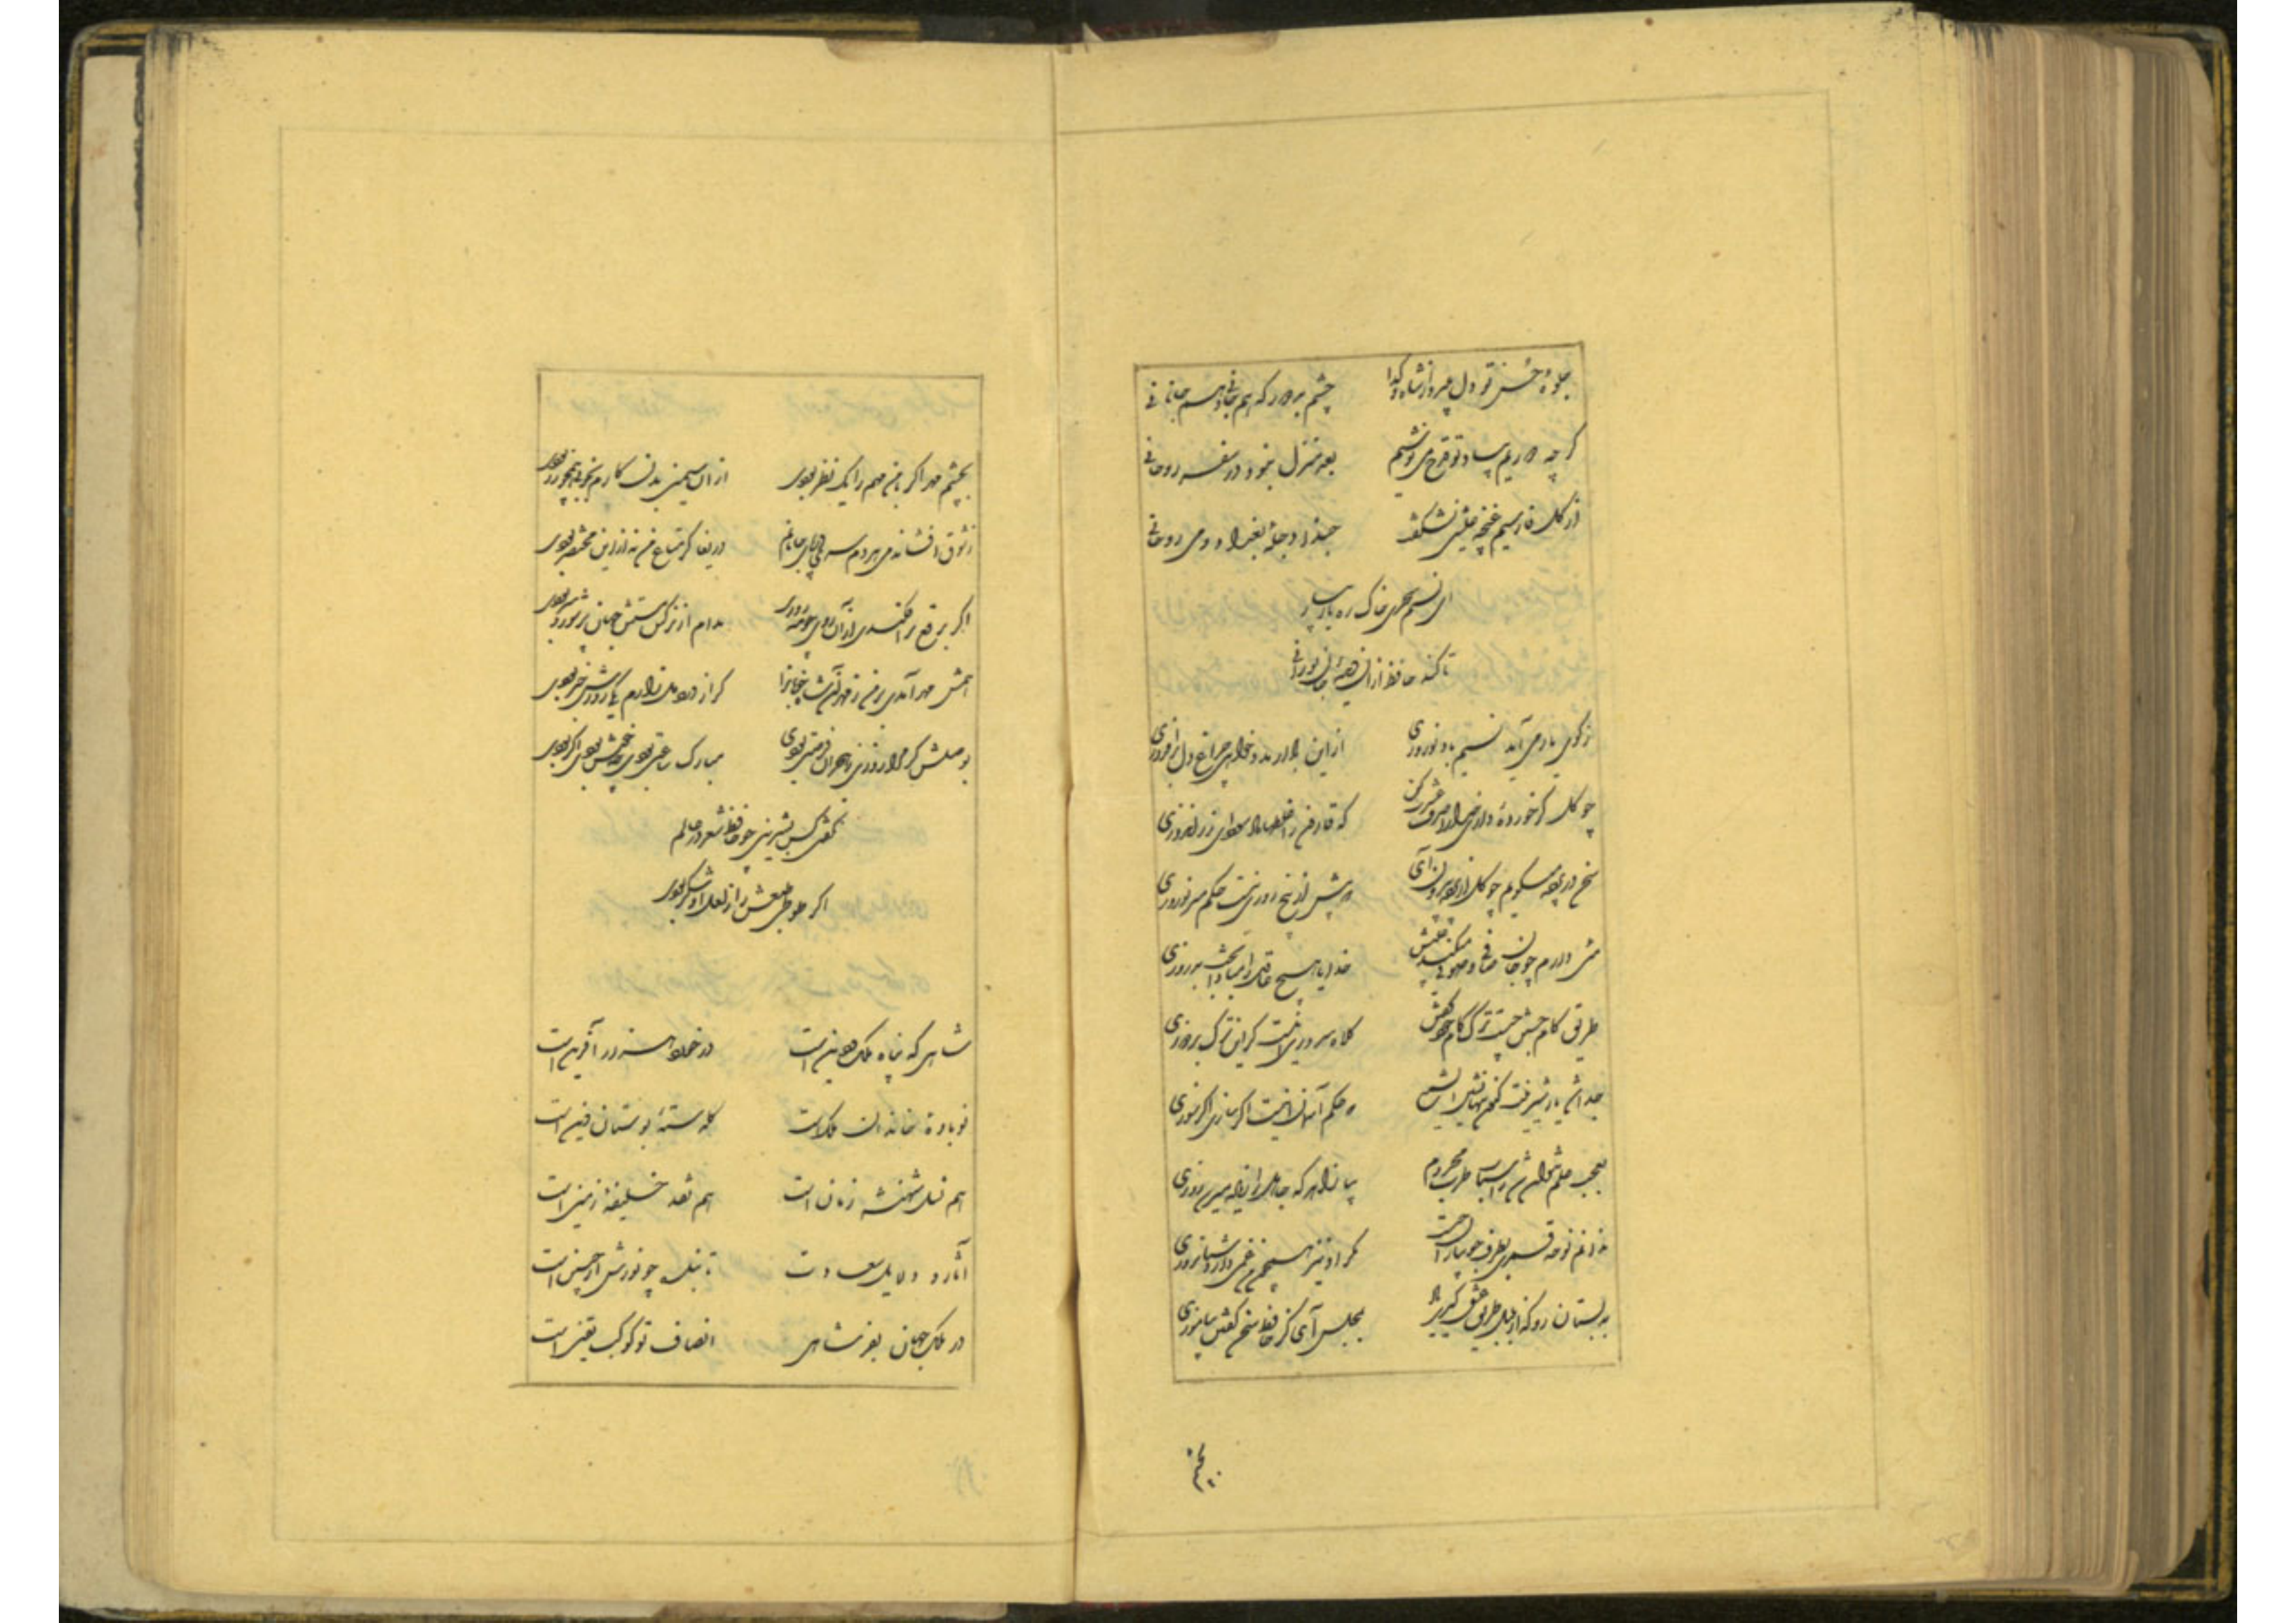 جلوهٔ حسن تو دل میبرد از شاه و گدا چشم بد دور که هم جانی و هم جانانی
گرچه دوریم بیاد تو قدح می نوشیم بعد منزل نبود در سفر روحانی
از گل فارسیم غنچه عیشی نشکفت حبذا دجلهٔ بغداد و می روحانی
ای نسیم سحری خاک ره یار بیار
تا کند حافظ از آن دیدهٔ جان نورانی
ز کوی یار می آید نسیم باد نوروزی از این باد ار مدد خواهی چراغ دل برافروزی
چو گل گر خوردهٔ داری خدا را صرف عشرت کن که قارون را غلطها داد سودای زر اندوزی
سخن در پرده میگویم چو گل از پرده بیرون آی که بیش از پنج روزی نیست حکم میر نوروزی
میی دارم چو جان صافی و صوفی میکند عیبش خدایا هیچ عاقل را مبادا بخت بد روزی
طریق کام جستن چیست ترک کام خود گفتن کلاه سروری اینست گر این ترک بردوزی
جدا شد یار شیرینت کنون تنها نشین ای شمع که حکم آسمان اینست اگر سازی اگر سوزی
بعجب علم نتوان شد ز اسباب طرب محروم بیا زاهد که جاهل را زیاده میرسد روزی
ندانم نوحه قمری بطرف جویبار از چیست مگر او نیز همچون من غمی دارد شبانروزی
به بستان رو که از بلبل طریق عشق گیری یاد بمجلس آی کز حافظ سخن گفتن بیاموزی
بچشم مهر اگر با من مهم را یک نظر بودی از آن سیمین بدن کارم بخوبی خوبتر بودی
ز شوق افشاندمی هر دم سری در پای جانانم دریغا گر متاع من نه از این مختصر بودی
اگر برقع برافکندی از آن روی چو مه روزی مدام از نرگس مستش جهان پر شور و شر بودی
همش مهر آمدی بر من ز مهر آن شاه خوبانرا گر از درد دل زارم یکی روزش خبر بودی
بوصلش گر مرا روزی ز هجران فرصتی بودی مبارک ساعتی بودی چه خوش بودی اگر بودی
نگفتی کس بشیرینی چو حافظ شعر در عالم
اگر طوطی طبعش را ز لعل او شکر بودی
شاهی که پناه ملک و دین است در خورد هزار آفرین است
نوباوهٔ خاندان ملک است گلدستهٔ بوستان دین است
هم نسل شهنشه زمان است هم نقد خلیفهٔ زمین است
آثار و دلایل سعادت تابنده چو نورش از جبین است
در ملک جهان بفر شاهی انصاف تو کوکب یقین است